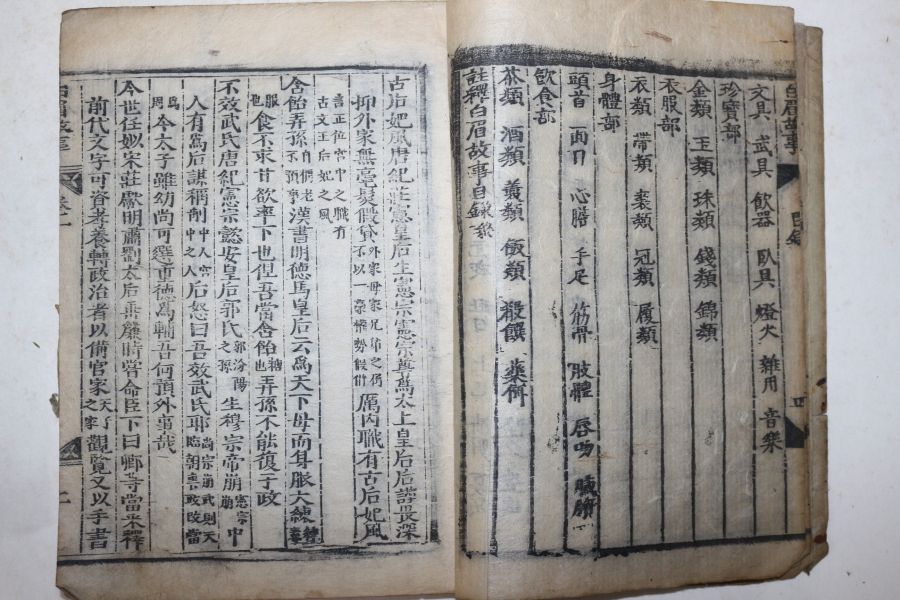 文具 武具 飲器 臥具 燈火 雜用 音樂
珍寶部
金類 玉類 珠類 錢類 錦類
衣服部
衣類 帶類 裘類 冠類 履類
身體部
頭首 面目 心膽 手足 筋骨 肢體 唇吻 臟腑
飲食部
茶類 酒類 羹類 飯類 殽饌 藥餌
註釋白眉故事目錄終
古后妃風唐紀莊憲皇后生憲宗憲宗尊爲太上皇后后謹畏深
抑外家無毫髮假貸外家母家兄弟之仍不以一毫權勢假借厲內職有古后妃風
言正位宮中之職有古文王后妃之風
含飴弄孫漢書明德馬皇后云爲天下母而身服大練
服也食不求甘欲率下也但吾當含飴糖也弄孫不能復子政
不效武氏唐紀憲宗懿安皇后郭氏郭汾陽之孫生穆宗帝崩憲宗崩中
人有爲后謀稱制中人宮中之人后怒曰吾效武氏耶高宗崩武則天臨朝
今太子雖幼尚可選重德爲輔吾何預外事哉
今世任姒宋莊獻明肅劉太后垂簾時嘗命臣下曰卿等當采釋
前代文字可資孝養轉政治者以備官家觀覽又以手書
白眉故事
卷一
二